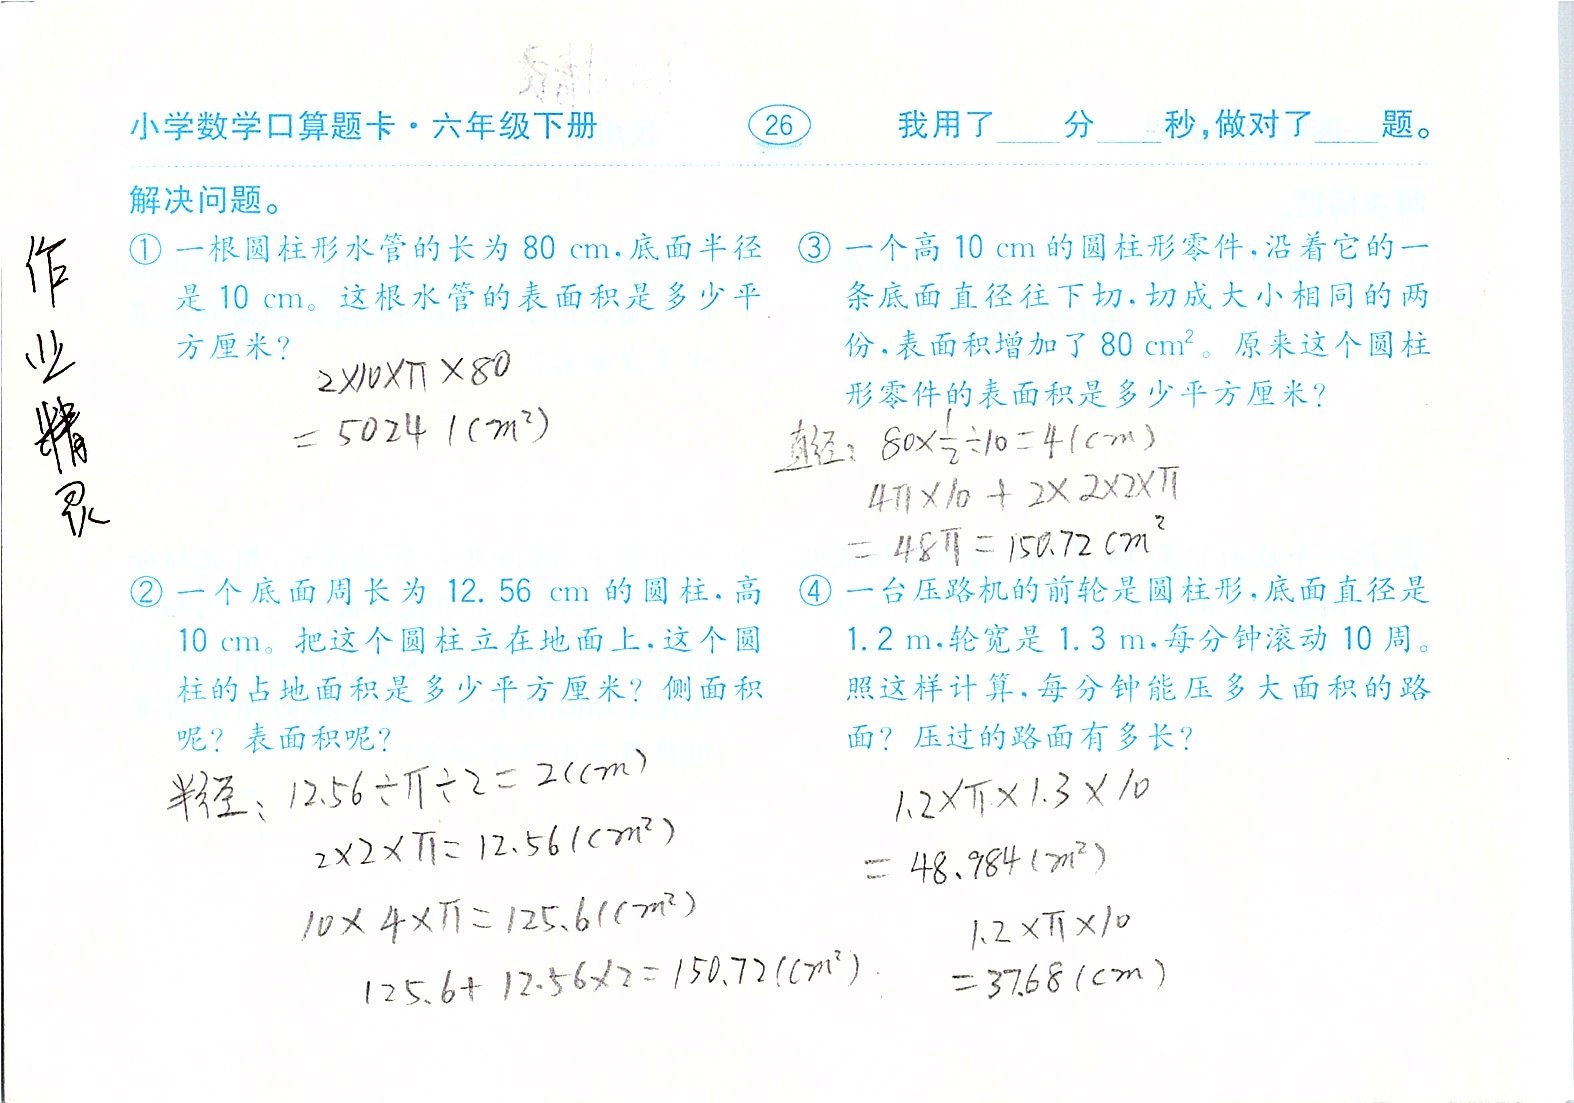 小学数学口算题卡·六年级下册 26 我用了____分____秒,做对了____题。
解决问题。
作业精灵
① 一根圆柱形水管的长为 80 cm,底面半径
是 10 cm。这根水管的表面积是多少平
方厘米?
2×10×π×80
= 5024 (cm²)
② 一个底面周长为 12.56 cm 的圆柱,高
10 cm。把这个圆柱立在地面上,这个圆
柱的占地面积是多少平方厘米?侧面积
呢?表面积呢?
半径: 12.56÷π÷2 = 2(cm)
2×2×π = 12.56(cm²)
10×4×π = 125.6(cm²)
125.6+12.56×2 = 150.72(cm²)
③ 一个高 10 cm 的圆柱形零件,沿着它的一
条底面直径往下切,切成大小相同的两
份,表面积增加了 80 cm²。原来这个圆柱
形零件的表面积是多少平方厘米?
直径: 80×1/2÷10 = 4(cm)
4π×10 + 2×2×2×π
= 48π = 150.72 cm²
④ 一台压路机的前轮是圆柱形,底面直径是
1.2 m,轮宽是 1.3 m,每分钟滚动 10 周。
照这样计算,每分钟能压多大面积的路
面?压过的路面有多长?
1.2×π×1.3×10
= 48.984(m²)
1.2×π×10
= 37.68(cm)